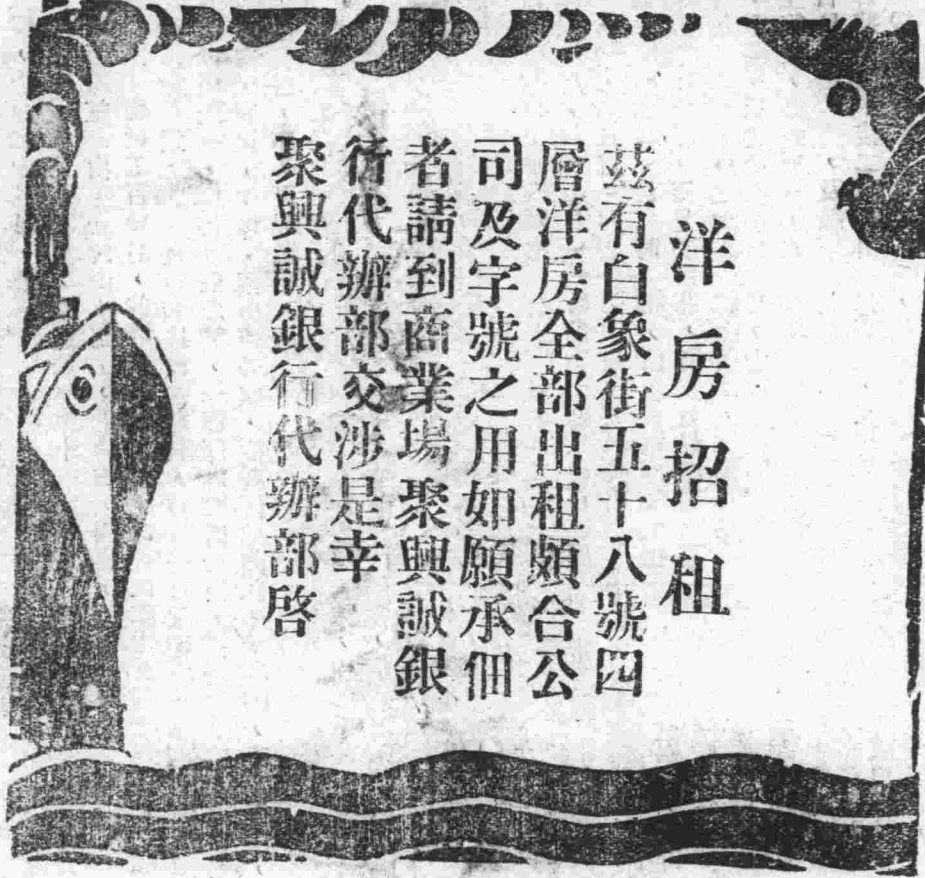 洋房招租
茲有白象街五十八號四
層洋房全部出租頗合公
司及字號之用如願承佃
者請到商業場聚興誠銀
行代辦部交涉是幸
聚興誠銀行代辦部啓